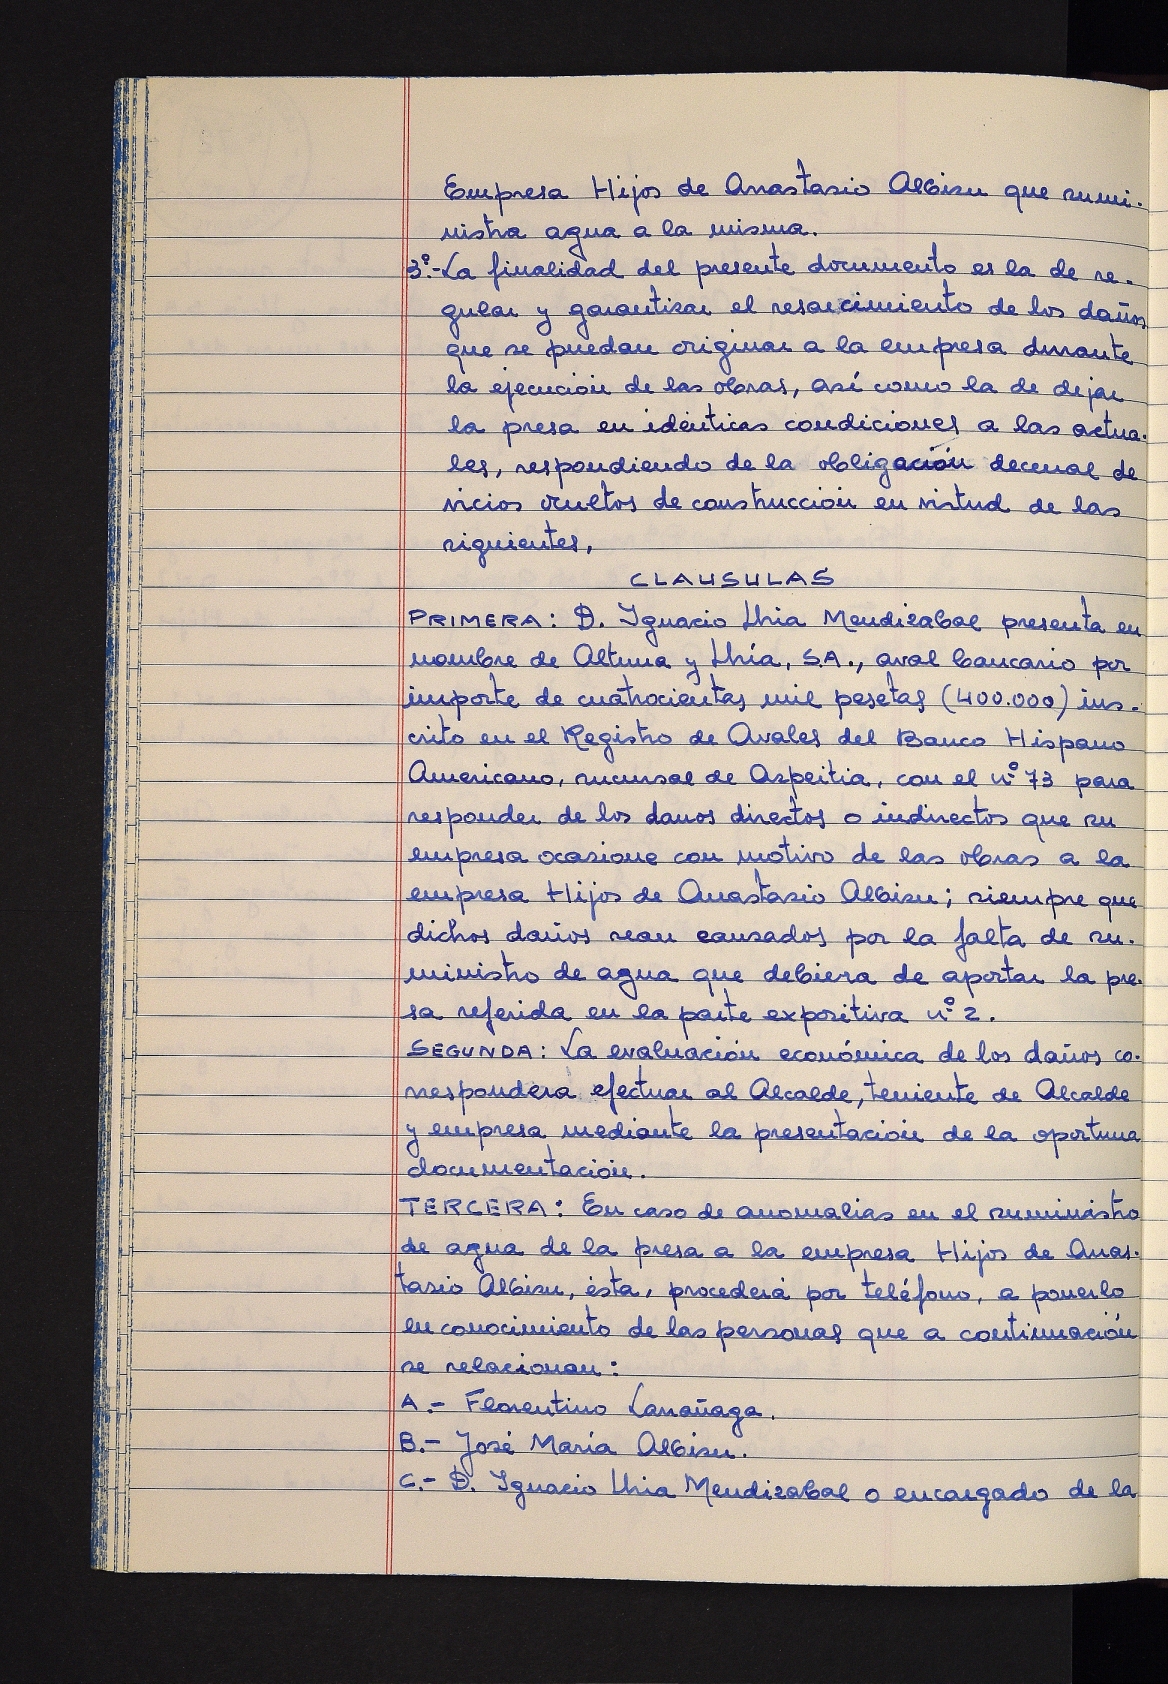 Empresa Hijos de Anastasio Albisu que sumi-
nistra agua a la misma.
3º.- La finalidad del presente documento es la de re-
gular y garantizar el resarcimiento de los daños
que se puedan originar a la empresa durante
la ejecución de las obras, así como la de dejar
la presa en idénticas condiciones a las actua-
les, respondiendo de la obligación decenal de
vicios ocultos de construcción en virtud de las
siguientes,
CLAUSULAS
PRIMERA: D. Ignacio Uria Mendizabal presenta en
nombre de Altuna y Uría, S.A., aval bancario por
importe de cuatrocientas mil pesetas (400.000) ins-
crito en el Registro de Avales del Banco Hispano
Americano, sucursal de Azpeitia, con el nº 73 para
responder de los danos directos o indirectos que su
empresa ocasione con motivo de las obras a la
empresa Hijos de Anastasio Albisu; siempre que
dichos daños sean causados por la falta de su-
ministro de agua que debiera de aportar la pre-
sa referida en la parte expositiva nº 2.
SEGUNDA: La evaluación económica de los daños co-
rrespondera efectuar al Alcalde, teniente de Alcalde
y empresa mediante la presentación de la oportuna
documentación.
TERCERA: En caso de anomalias en el suministro
de agua de la presa a la empresa Hijos de Anas-
tasio Albisu, ésta, procederá por teléfono, a ponerlo
en conocimiento de las personas que a continuación
se relacionan:
A.- Florentino Larrañaga.
B.- José María Albisu.
C.- D. Ignacio Uria Mendizabal o encargado de la